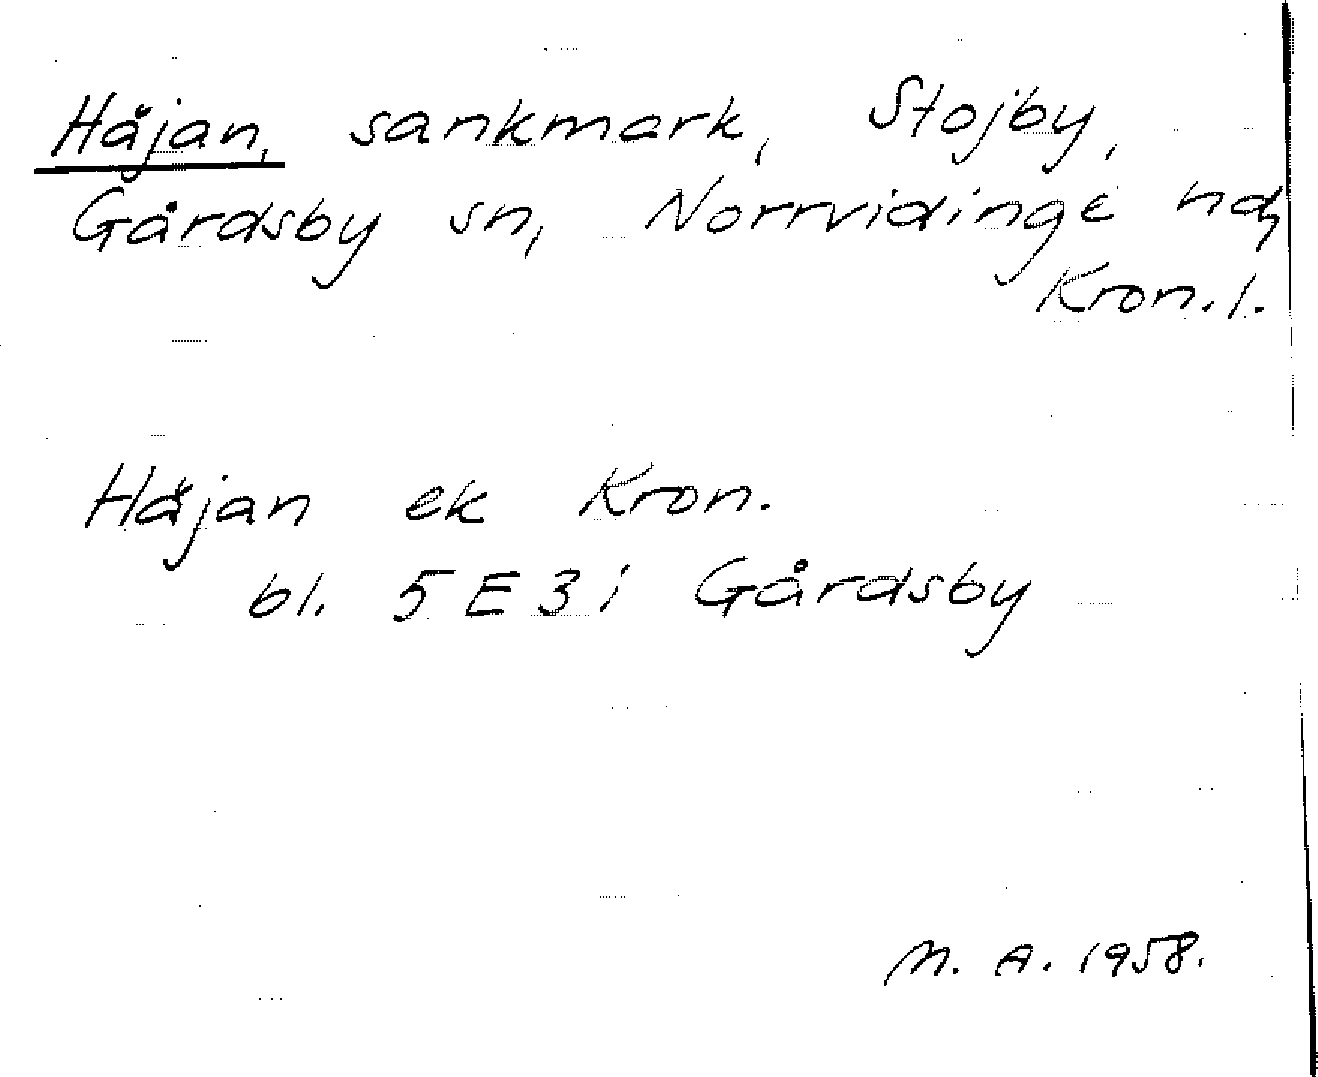 Håjan, sankmark, Stojby,
Gårdsby sn, Norrvidinge hd,
Kron. l.
Håjan ek Kron.
bl. 5 E 3 i Gårdsby
M. A. 1958.